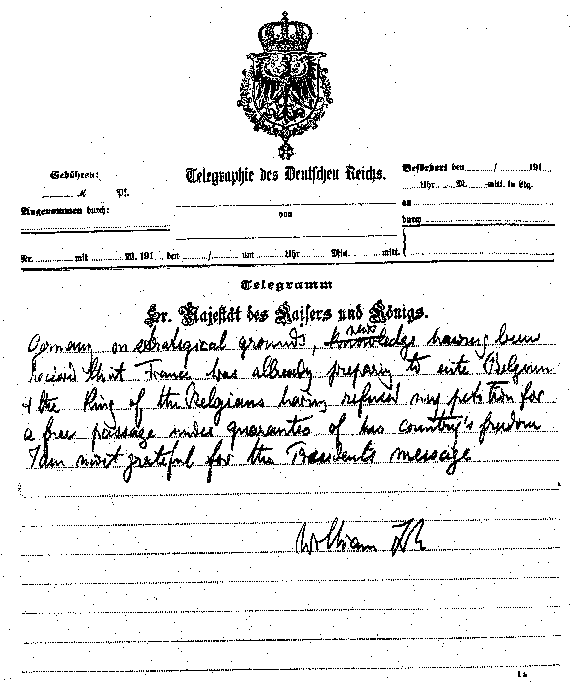 Gebühren:
M. Pf.
Angenommen durch:
Telegraphie des Deutschen Reichs.
von
Befördert den / 191
Uhr M. mitt. in Ltg.
an
durch
Nr. mit W. 191 den / um Uhr Min. mitt.
Telegramm
Sr. Majestät des Kaisers und Königs.
Germany on strategical grounds, news knowledge having been
received that France was allready preparing to enter Belgium
& the King of the Belgians having refused my petition for
a free passage under guarantee of his country's freedom
I am most grateful for the President's message
William I.R.
1a